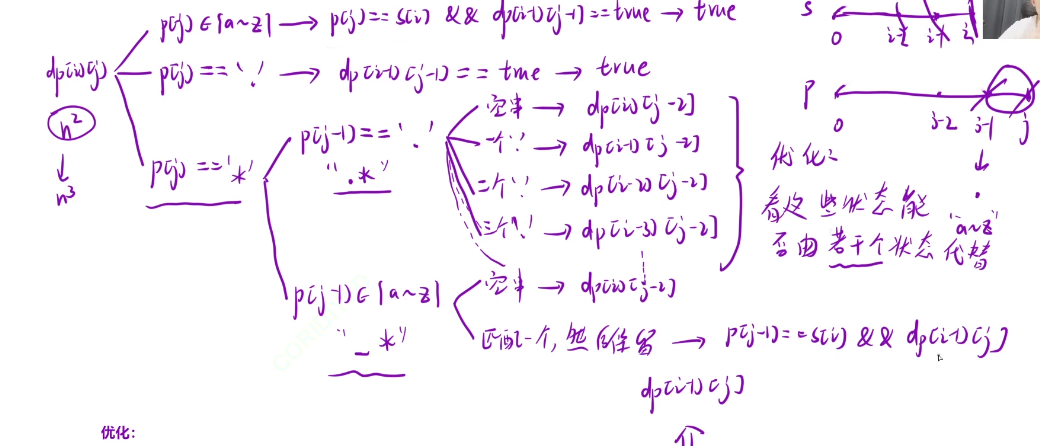 p(j) ∈ [a~z] → p(j) == s(i) && dp[i-1][j-1] == true → true
dp[i][j] p[j] == '.' → dp[i-1][j-1] == true → true
n²
↓
n³
p(j) == '*'
p[j-1] == '.'
".*"
空串 → dp[i][j-2]
一个'.' → dp[i-1][j-2]
二个'.' → dp[i-2][j-2]
三个'.' → dp[i-3][j-2]
p[j-1] ∈ [a~z]
"_*"
空串 → dp[i][j-2]
匹配一个,然后保留 → p[j-1] == s(i) && dp[i-1][j]
dp[i-1][j]
S
0 i-2 i-1 i
P
0 j-2 j-1 j
↓
.
"a~z"
优化:
看这些状态能
否由若干个状态代替
优化: